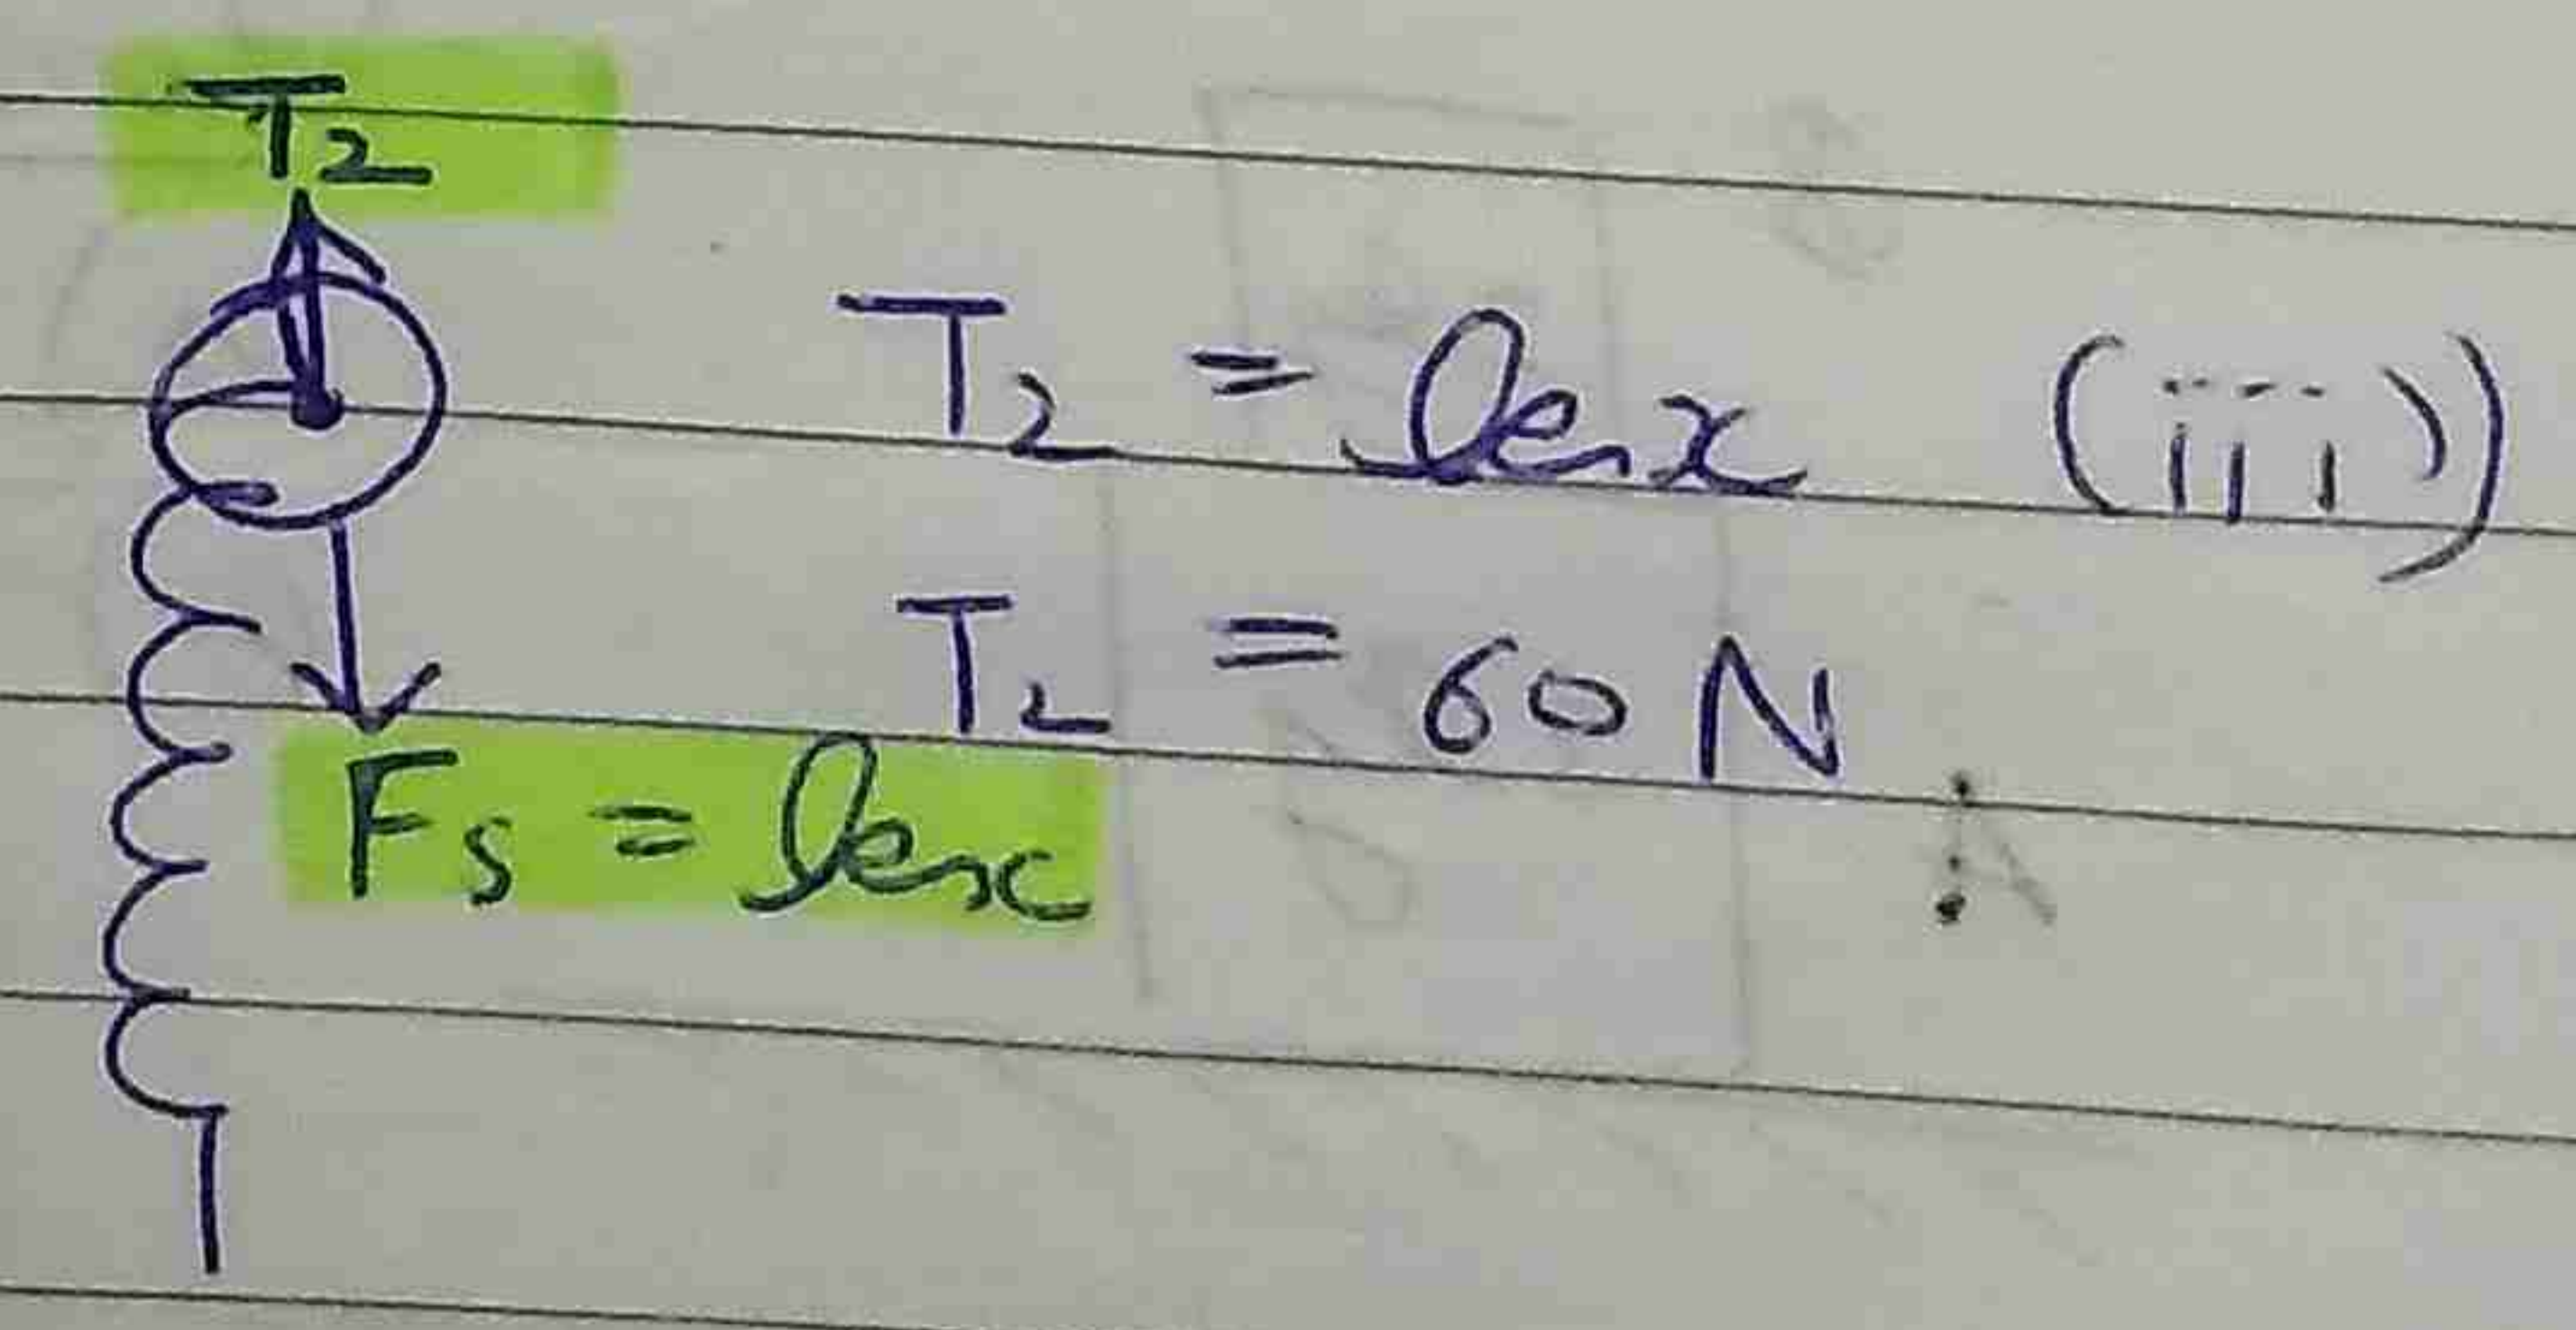 T₂
T₂ = kx (iii)
T₂ = 60 N
Fs = kx